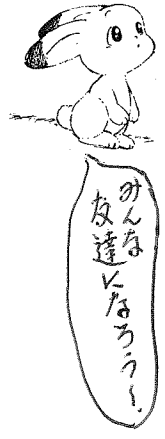 みんな
友達になろう〜.